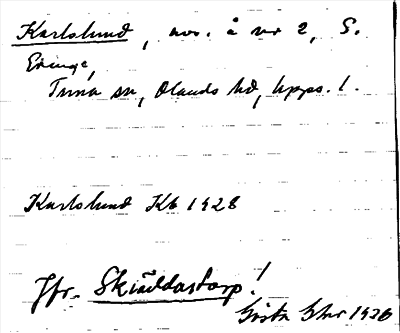 Karlslund, avs. å nr 2, S.
Eringe,
Tuna sn, Olands hd, Upps. l.
Karlslund Kb 1928
Jfr. Skräddastorp!
Gösta 1926